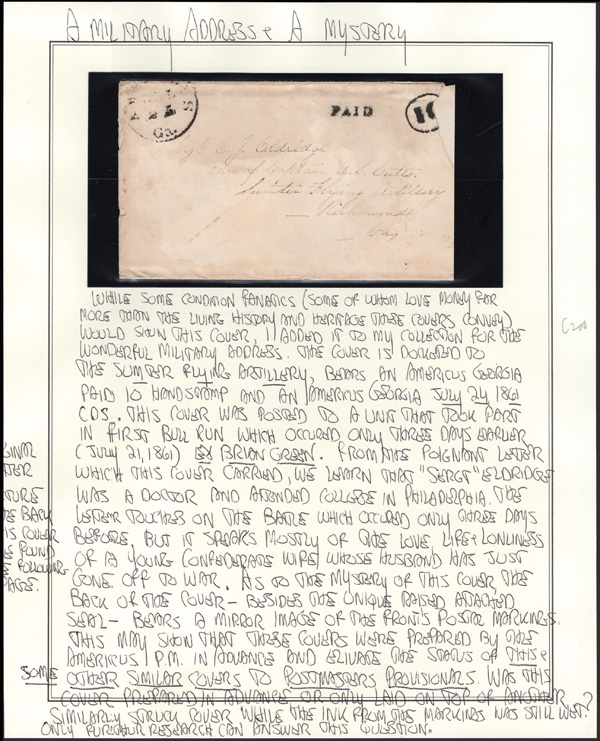 A MILITARY ADDRESS & A MYSTERY
PAID
10
Ga.
Richmond
WHILE SOME CONDITION FANATICS (SOME OF WHOM LOVE MONEY FAR
MORE THAN THE LIVING HISTORY AND HERITAGE THESE COVERS CONVEY)
WOULD SHUN THIS COVER, I ADDED IT TO MY COLLECTION FOR THE
WONDERFUL MILITARY ADDRESS. THE COVER IS DOCKETED TO
THE SUMTER FLYING ARTILLERY, BEARS AN AMERICUS GEORGIA
PAID 10 HANDSTAMP AND AN AMERICUS GEORGIA JULY 24 1861
CDS. THIS COVER WAS POSTED TO A UNIT THAT TOOK PART
IN FIRST BULL RUN WHICH OCCURED ONLY THREE DAYS EARLIER
(JULY 21, 1861) EX BRIAN GREEN. FROM THE POIGNANT LETTER
WHICH THIS COVER CARRIED, WE LEARN THAT "SERGT" ELDRIDGE
WAS A DOCTOR AND ATTENDED COLLEGE IN PHILADELPHIA. THE
LETTER TOUCHES ON THE BATTLE WHICH OCCURED ONLY THREE DAYS
BEFORE, BUT IT SPEAKS MOSTLY OF THE LOVE, LIFE & LONLINESS
OF A YOUNG CONFEDERATE WIFE, WHOSE HUSBAND HAS JUST
GONE OFF TO WAR. AS TO THE MYSTERY OF THIS COVER, THE
BACK OF THE COVER - BESIDES THE UNIQUE RAISED ATTACHED
SEAL - BEARS A MIRROR IMAGE OF THE FRONT'S POSTAL MARKINGS.
THIS MAY SHOW THAT THESE COVERS WERE PREPARED BY THE
AMERICUS P.M. IN ADVANCE AND ELIVATE THE STATUS OF THIS &
SOME OTHER SIMILAR COVERS TO POSTMASTERS PROVISIONALS. WAS THIS
COVER PREPARED IN ADVANCE OR ONLY LAID ON TOP OF ANOTHER
SIMILARLY STRUCK COVER WHILE THE INK FROM THE MARKINGS WAS STILL WET?
ONLY FURTHUR RESEARCH CAN ANSWER THIS QUESTION.
GINAL
TTER
TURE
E BACK
IS COVER
BE FOUND
FOLLOWING
PAGE.